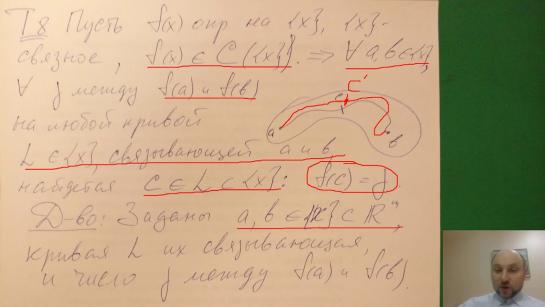 Т8 Пусть f(x) опр на {x}, {x}-
связное, f(x) ∈ C({x}). ⇒ ∀ a, b ∈ {x},
∀ γ между f(a) и f(b)
на любой кривой
L ∈ {x}, связывающей a и b,
найдется c ∈ L ⊂ {x}: f(c) = γ
Д-во: Заданы a, b ∈ {x} ⊂ ℝⁿ,
кривая L их связывающая,
и число γ между f(a) и f(b).
c'
c
a
b